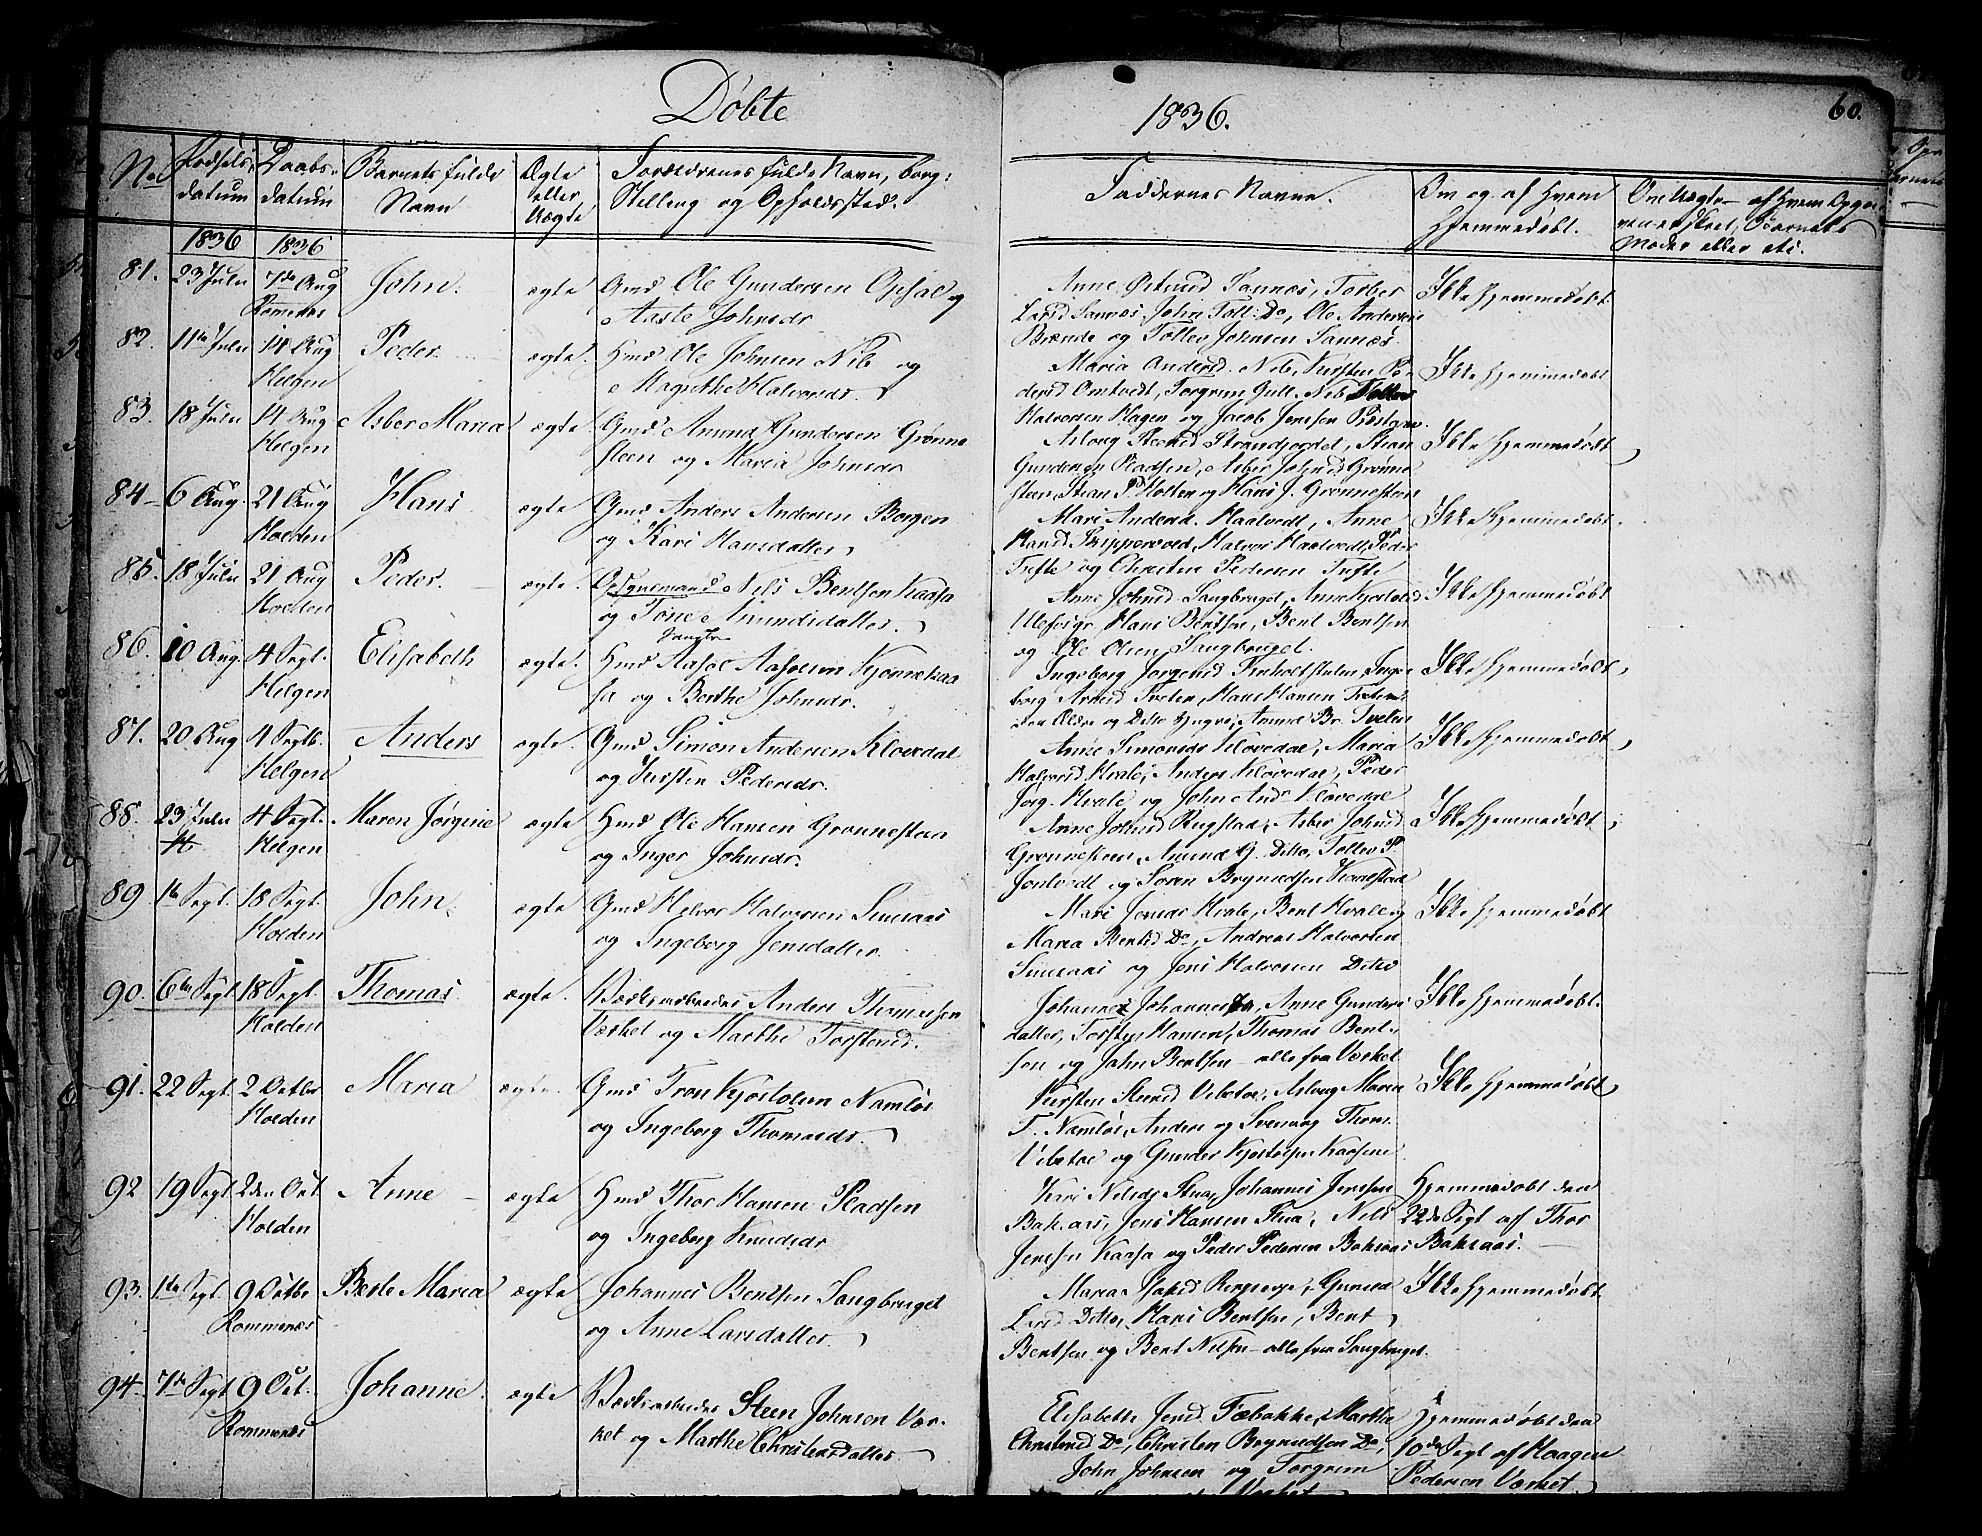 Døbte
1836.
60.
No
Fødsels-
datum
Daabs-
datum
Barnets fulde
Navn
Ægte
eller
Uægte
Forældrenes fulde Navn, Borg:
Stilling og Opholdssted.
Faddernes Navne.
Om og af Hvem
Hjemmedøbt.
1836
1836
81. 23 Julii 7de Aug John. ægte Gmd Ole Gundersen Opsal og
Romenæs Aaste Johnsdr
Anne Sannæs, Torber
Larsd Sannæs, John Toll: Do, Ole Andersen
og Tollev Johnsen Sannæs
Ikke hjemmedøbt
82. 11te Julii 14 Aug Peder. ægte Hmd Ole Johnsen Nib og
Helgen Magrethe Halvorsdr.
Maria Andersd. Nib, Kirsten Pe-
dersd Omtvedt, Torgrim Gull. Nib
Halvorsen Hagen og Jacob Jensen
Ikke hjemmedøbt
83. 18 Julii 14 Aug Asber Maria ægte Gmd Amund Gundersen Grønne
Helgen steen og Maria Johnsdr
Asloug Strandjordet, Stian
Gundersen Pladsen, Asber Johnsd Grønne
steen, Stian P. Holten og Hans J. Grønnesteen
Ikke hjemmedøbt
84 6 Aug. 21 Aug Hans ægte Gmd Anders Andersen Borgen
Holden og Kari Hansdatter
Mari Andersd. Haatvedt, Anne
Hansd Skippervold, Halvor Haatvedt, Peder
Tufte og Christen Pedersen Tufte
Ikke hjemmedøbt.
85. 18 Julii 21 Aug Peder. ægte. Opsynsmand Nils Bentsen Kaasa
Holden og Tone Amundsdatter.
Anne Johnsd Saugbruget, Anne
Hans Bentsen, Bent Bentsen
og Ole Olsen Saugbruget.
Ikke hjemmedøbt
86. 10 Aug. 4 Sept. Elisabeth ægte. Hmd Aasol Aasolsen Kjønnekaa
Helgen sa og Berthe Johnsdr.
Ingeborg Jorgensd Inge
borg Arnesd Tveten, Hans Hansen Tveten
den Ældre og Ditto Yngre, Amund Br. Tveten
Ikke hjemmedøbt
87. 20 Aug 4 Septb. Anders ægte. Gmd Simon Andersen Klovedal
Helgen og Kirsten Pedersdr.
Anne Simonsdr Klovedal, Maria
Halvorsd Hvale, Anders Klovedal, Peder
Jörg. Hvale og John Ands Klovedal
Ikke hjemmedøbt
88. 23 Julii 4 Sept. Maren Jørgine ægte Hmd Ole Hansen Grønnesteen
Helgen og Inger Johnsdr.
Anne Johnsd Rugstad, Asber Johnsd
Grønnesteen, Amund G. Ditto, Tollev P.
Jontvedt og Soren Brynildsen Kaasestad
Ikke hjemmedøbt
89 1te Sept. 18 Sept. John ægte Gmd Halvor Halvorsen Simeraas
Holden og Ingeborg Jensdatter
Mari Jonsdr Hvale, Bent Hvale og
Maria Bentsd Do, Andreas Halvorsen
Simeraas og Jens Halvorsen Ditto
Ikke hjemmedøbt
90. 6te Sept 18 Sept. Thomas ægte. Værksarbeider Anders Thomassen
Holden Værket og Marthe Torstensd.
Johanne Anne Gunders
datter, Torsten Hansen, Thomas Bent-
sen og John Bentsen - alle fra Værket
Ikke hjemmedøbt.
91. 22 Sept 2 Octbr Maria ægte Gmd Tron Kjostolsen Namløs
Holden og Ingeborg Thomasdr.
Kirsten Stensd Vibetoe, Aslaug Maria
T. Namløs, Anders og Svenung Thom.
Vibetoe og Gunder Kjostolsen Kaasene
Ikke hjemmedøbt
92 19 Sept 2den Oct Anne ægte Hmd Thor Hansen Pladsen
Holden og Ingeborg Knudsdr
Kari Nilsdr Stua, Johannes Jensen
Bakaas, Jens Hansen Stua, Nils
Jensen Kaasa og Peder Pedersen Bakaas
Hjemmedøbt den
22de Sept af Thor
Bakaas.
93. 1te Sept. 9 Octbr Berte Maria ægte Johannes Bentsen Saugbruget
Rommenæs og Anne Larsdatter
Maria Gunild
Larsd Ditto, Hans Bentsen, Bent
Bentsen og Bent Nilsen - alle fra Saugbruget.
Ikke hjemmedøbt
94 7de Sept 9 Oct. Johanne. ægte Værksarbeider Steen Johnsen Vær-
Rommenæs ket og Marthe Christensdatter
Elisabeth Jensd. Fæbakke, Marthe
Christensd Do, Christen Brynildsen Do,
John Johnsen og Torgrim
Værket
Hjemmedøbt den
10de Sept af Haagen
Pedersen Værket